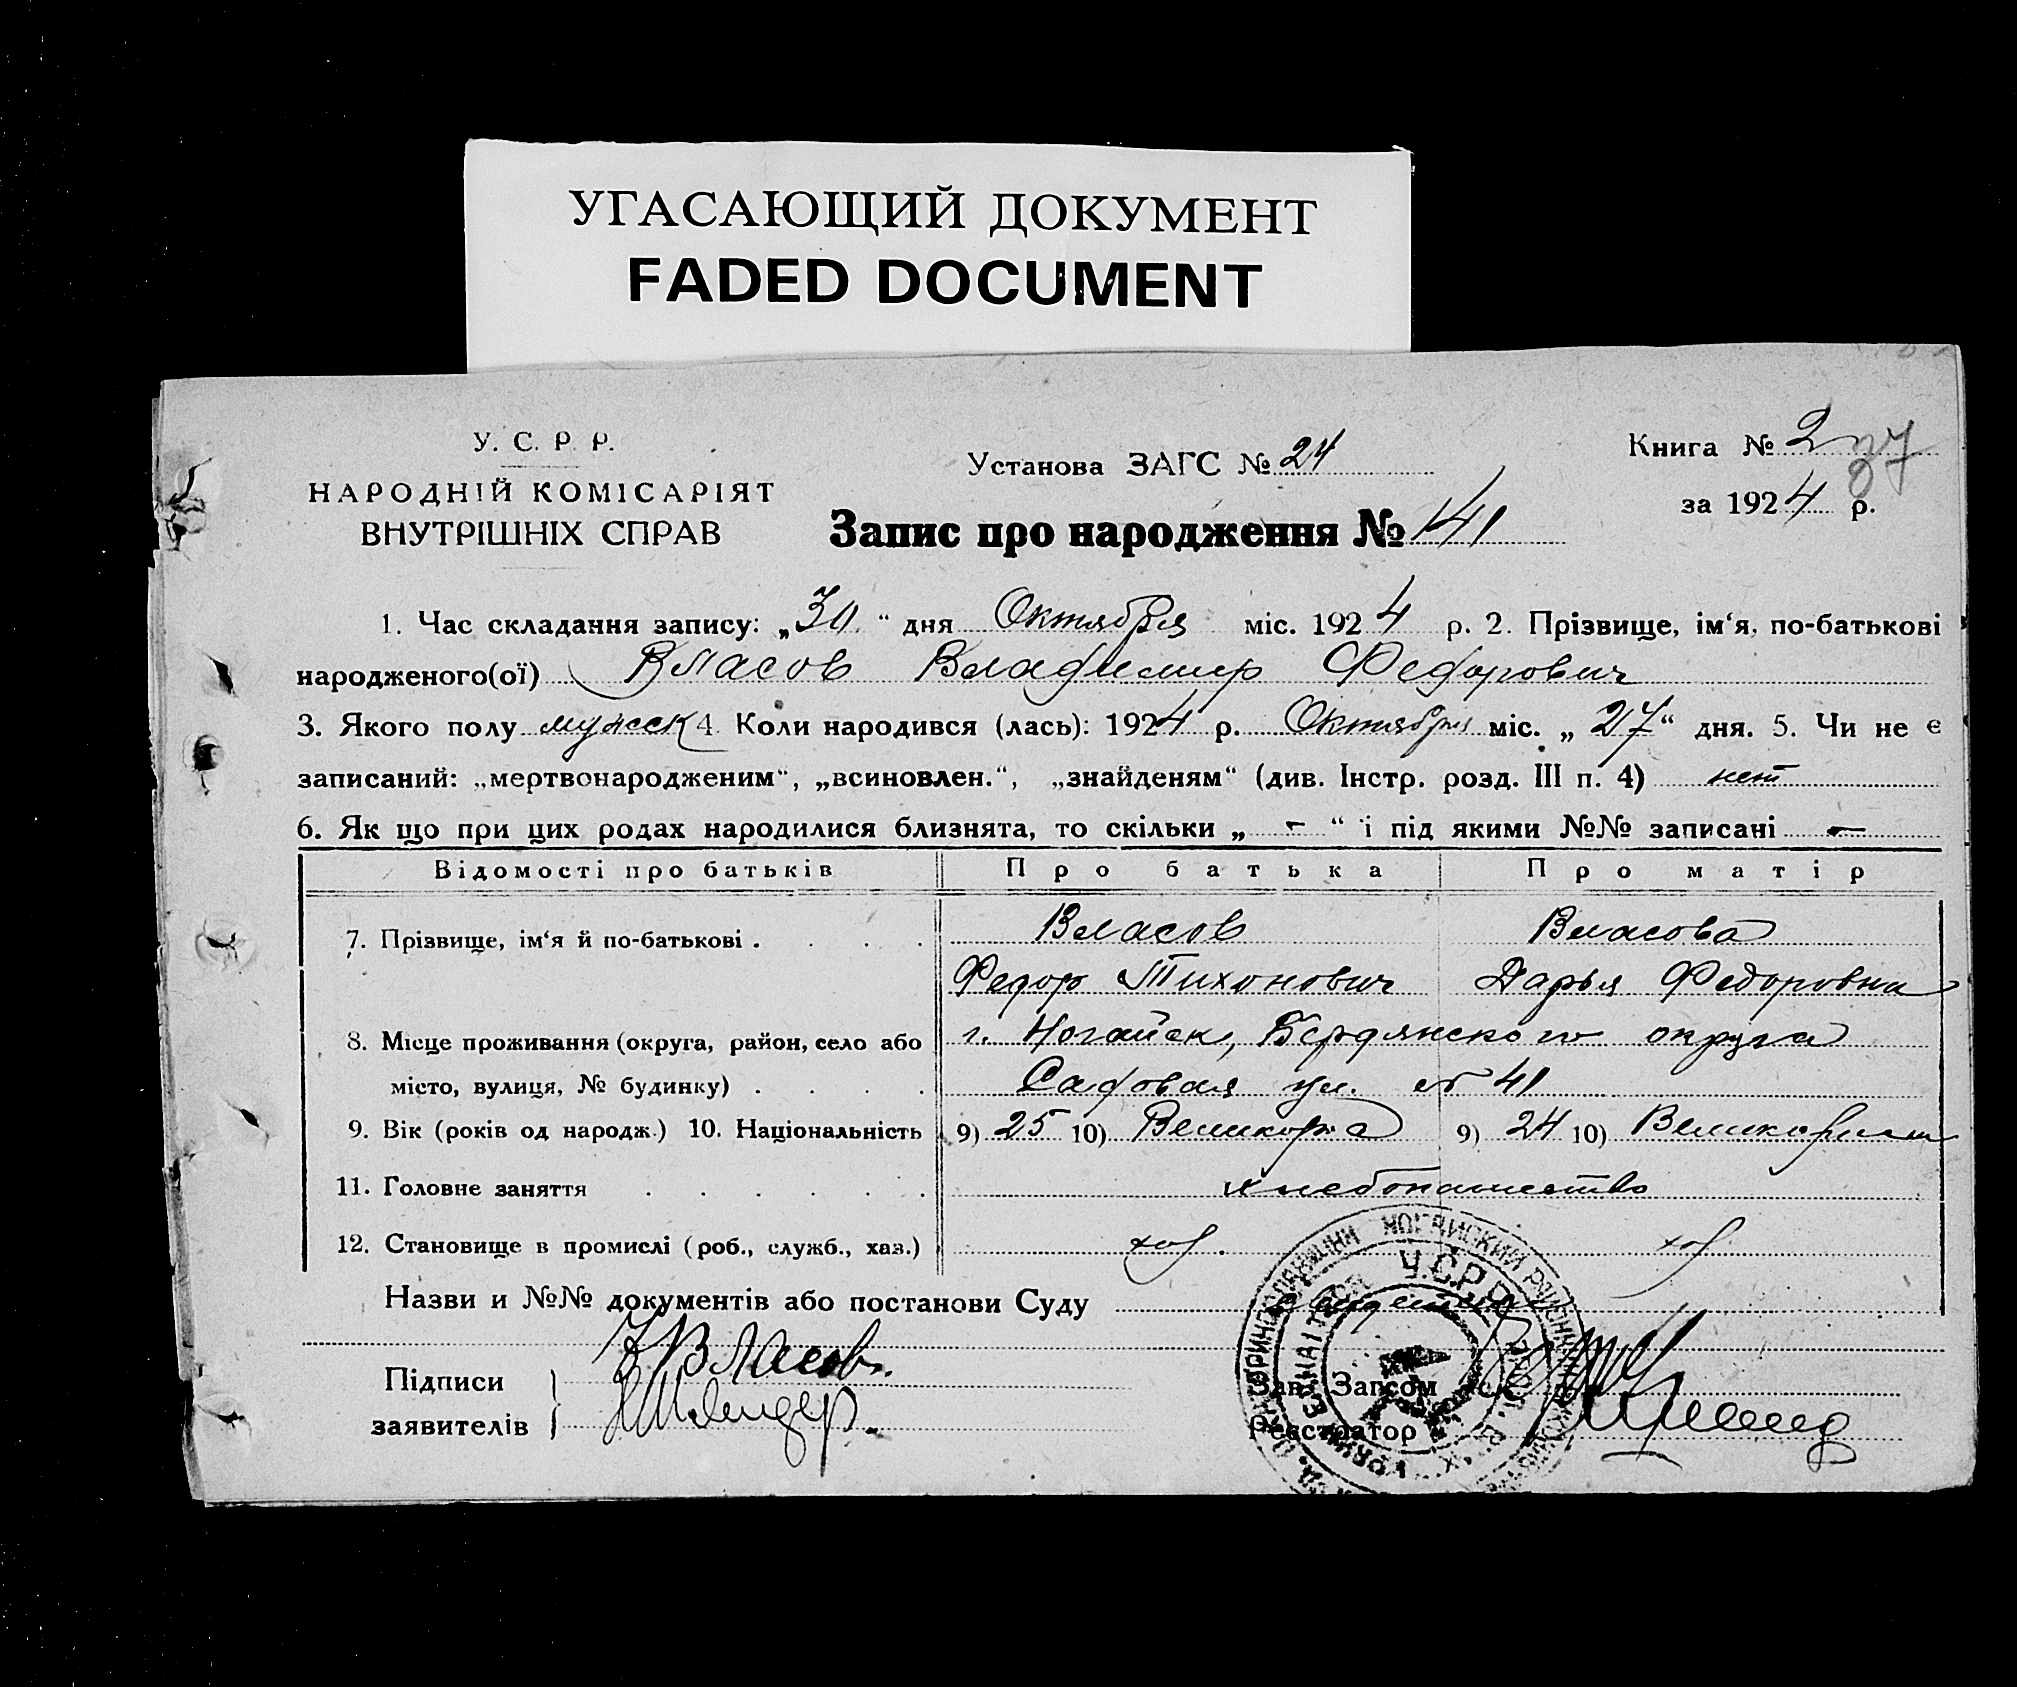 УГАСАЮЩИЙ ДОКУМЕНТ
FADED DOCUMENT
У. С. Р. Р.
НАРОДНІЙ КОМІСАРІЯТ
ВНУТРІШНІХ СПРАВ
Установа ЗАГС № 24
Запис про народження № 141
Книга № 2
37
за 1924 р.
1. Час складання запису: „30“ дня Октября міс. 1924 р. 2. Прізвище, ім‘я, по-батькові
народженого(ої) Власов Владимир Федорович
3. Якого полу мужск 4. Коли народився (лась): 1924 р. Октября міс. „27“ дня. 5. Чи не є
записаний: „мертвонародженим“, „всиновлен.“, „знайденям“ (див. Інстр. розд. III п. 4) нет
6. Як що при цих родах народилися близнята, то скільки „ - “ і під якими №№ записані -
Відомості про батьків Про батька Про матір
7. Прізвище, ім‘я й по-батькові . . . . Власов Власова
Федор Тихонович Дарья Федоровна
8. Місце проживання (округа, район, село або г. Ногайск, Бердянского округа
місто, вулиця, № будинку) . . . . Садовая ул. № 41
9. Вік (років од народж.) 10. Національність 9) 25 10) Великорса 9) 24 10)
11. Головне заняття . . . . . . хлебопашество
12. Становище в промислі (роб., служб., хаз.) хоз. хоз
Назви и №№ документів або постанови Суду
Підписи Власов
заявителів
Зав. Загсом
Реєстратор
У.С.Р.Р.